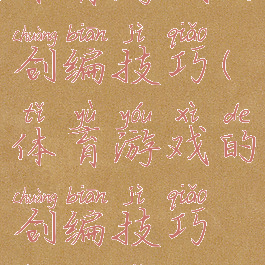 chuàng biān jì qiǎo
创编技巧(
tǐ yù yóu xì de
体育游戏的
chuàng biān jì qiǎo
创编技巧